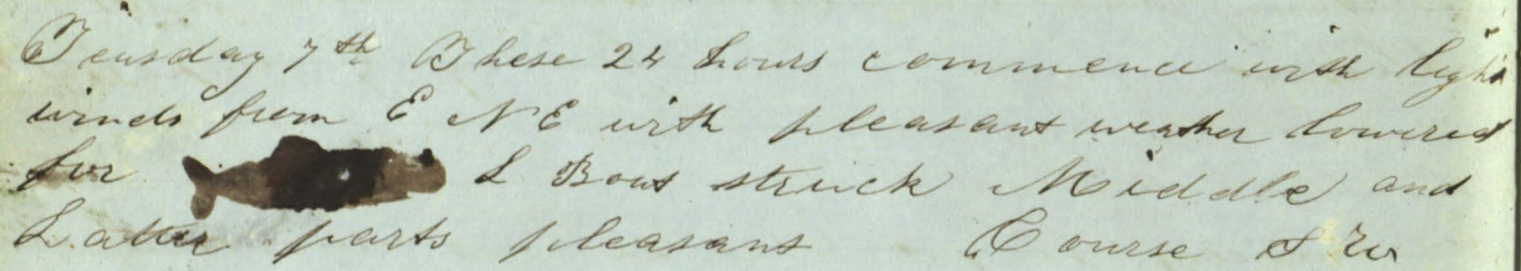 Teusday 7th These 24 hours commence with light
winds from E N E with pleasant weather lowered
for L Boat struck Middle and
Latter parts pleasant Course S W